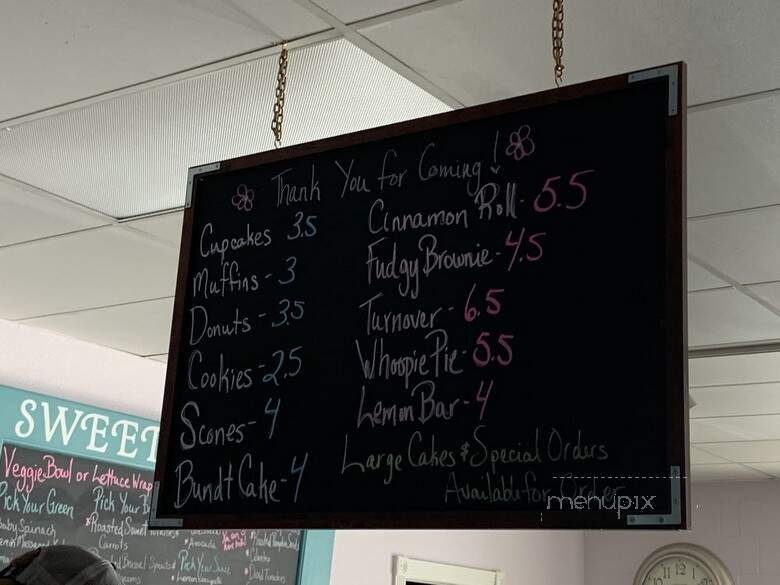 Thank You for Coming!
Cupcakes 3.5
Muffins - 3
Donuts - 3.5
Cookies - 2.5
Scones - 4
Bundt Cake - 4
Cinnamon Roll - 5.5
Fudgy Brownie - 4.5
Turnover - 6.5
Whoopie Pie - 5.5
Lemon Bar - 4
Large Cakes & Special Orders
Available for Order
menupix
SWEET
Veggie Bowl or Lettuce Wrap
Pick Your Green
Baby Spinach
Pick Your B
Roasted Sweet
Carrots
Avocado
Pick Your Sauce